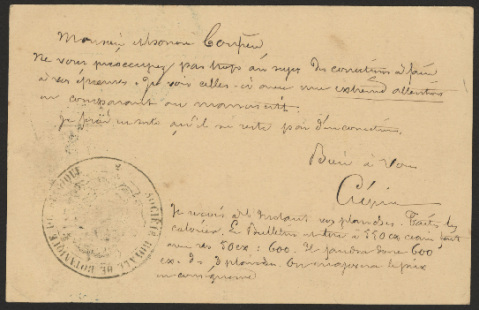 Monsieur et honoré Confrère
Ne vous préoccupez pas trop au sujet des corrections à faire
à vos épreuves. Je vois celles-ci avec une extrême attention
en comparant au manuscrit.
Je ferai en sorte qu'il ne reste pas d'incorrections.
Bien à vous
Crépin
Je reçois à l'instant vos planches. Faites les
colorier. Le Bulletin se tire à 550 ex
avec vos 50 ex : 600. Il faudra donc 600
ex. des 3 planches. On majorera le prix
en conséquence
SOCIÉTÉ ROYALE DE BOTANIQUE DE BELGIQUE